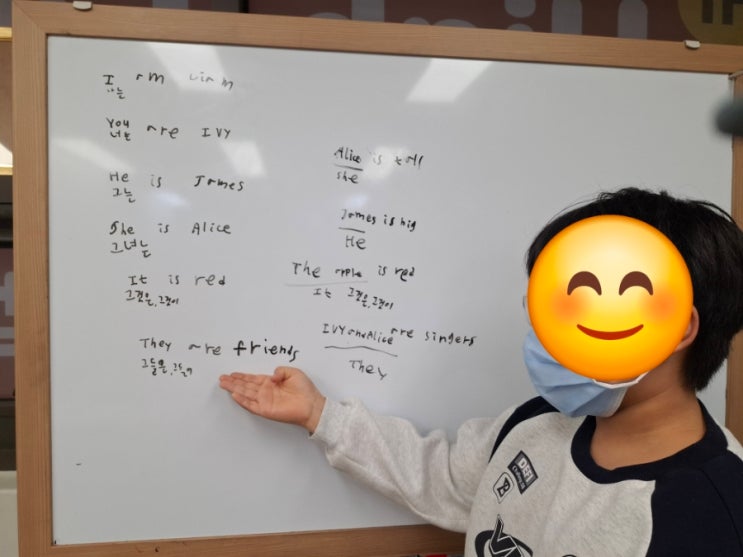 I am Liam
나는
You are IVY
너는
He is James
그는
She is Alice
그녀는
It is red
그것은, 그것이
They are friends
그들은, 그들이
Alice is tall
She
James is big
He
The apple is red
It 그것은, 그것이
IVY and Alice are singers
They
DEFI